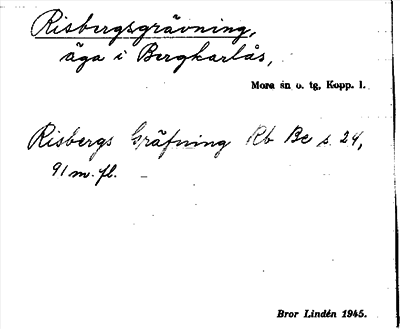 Risbergsgrävning,
äga i Bergkarlås,
Mora sn o. tg, Kopp. l.
Risbergs Gräfning Rb Be s. 24,
91 m. fl.
Bror Lindén 1945.